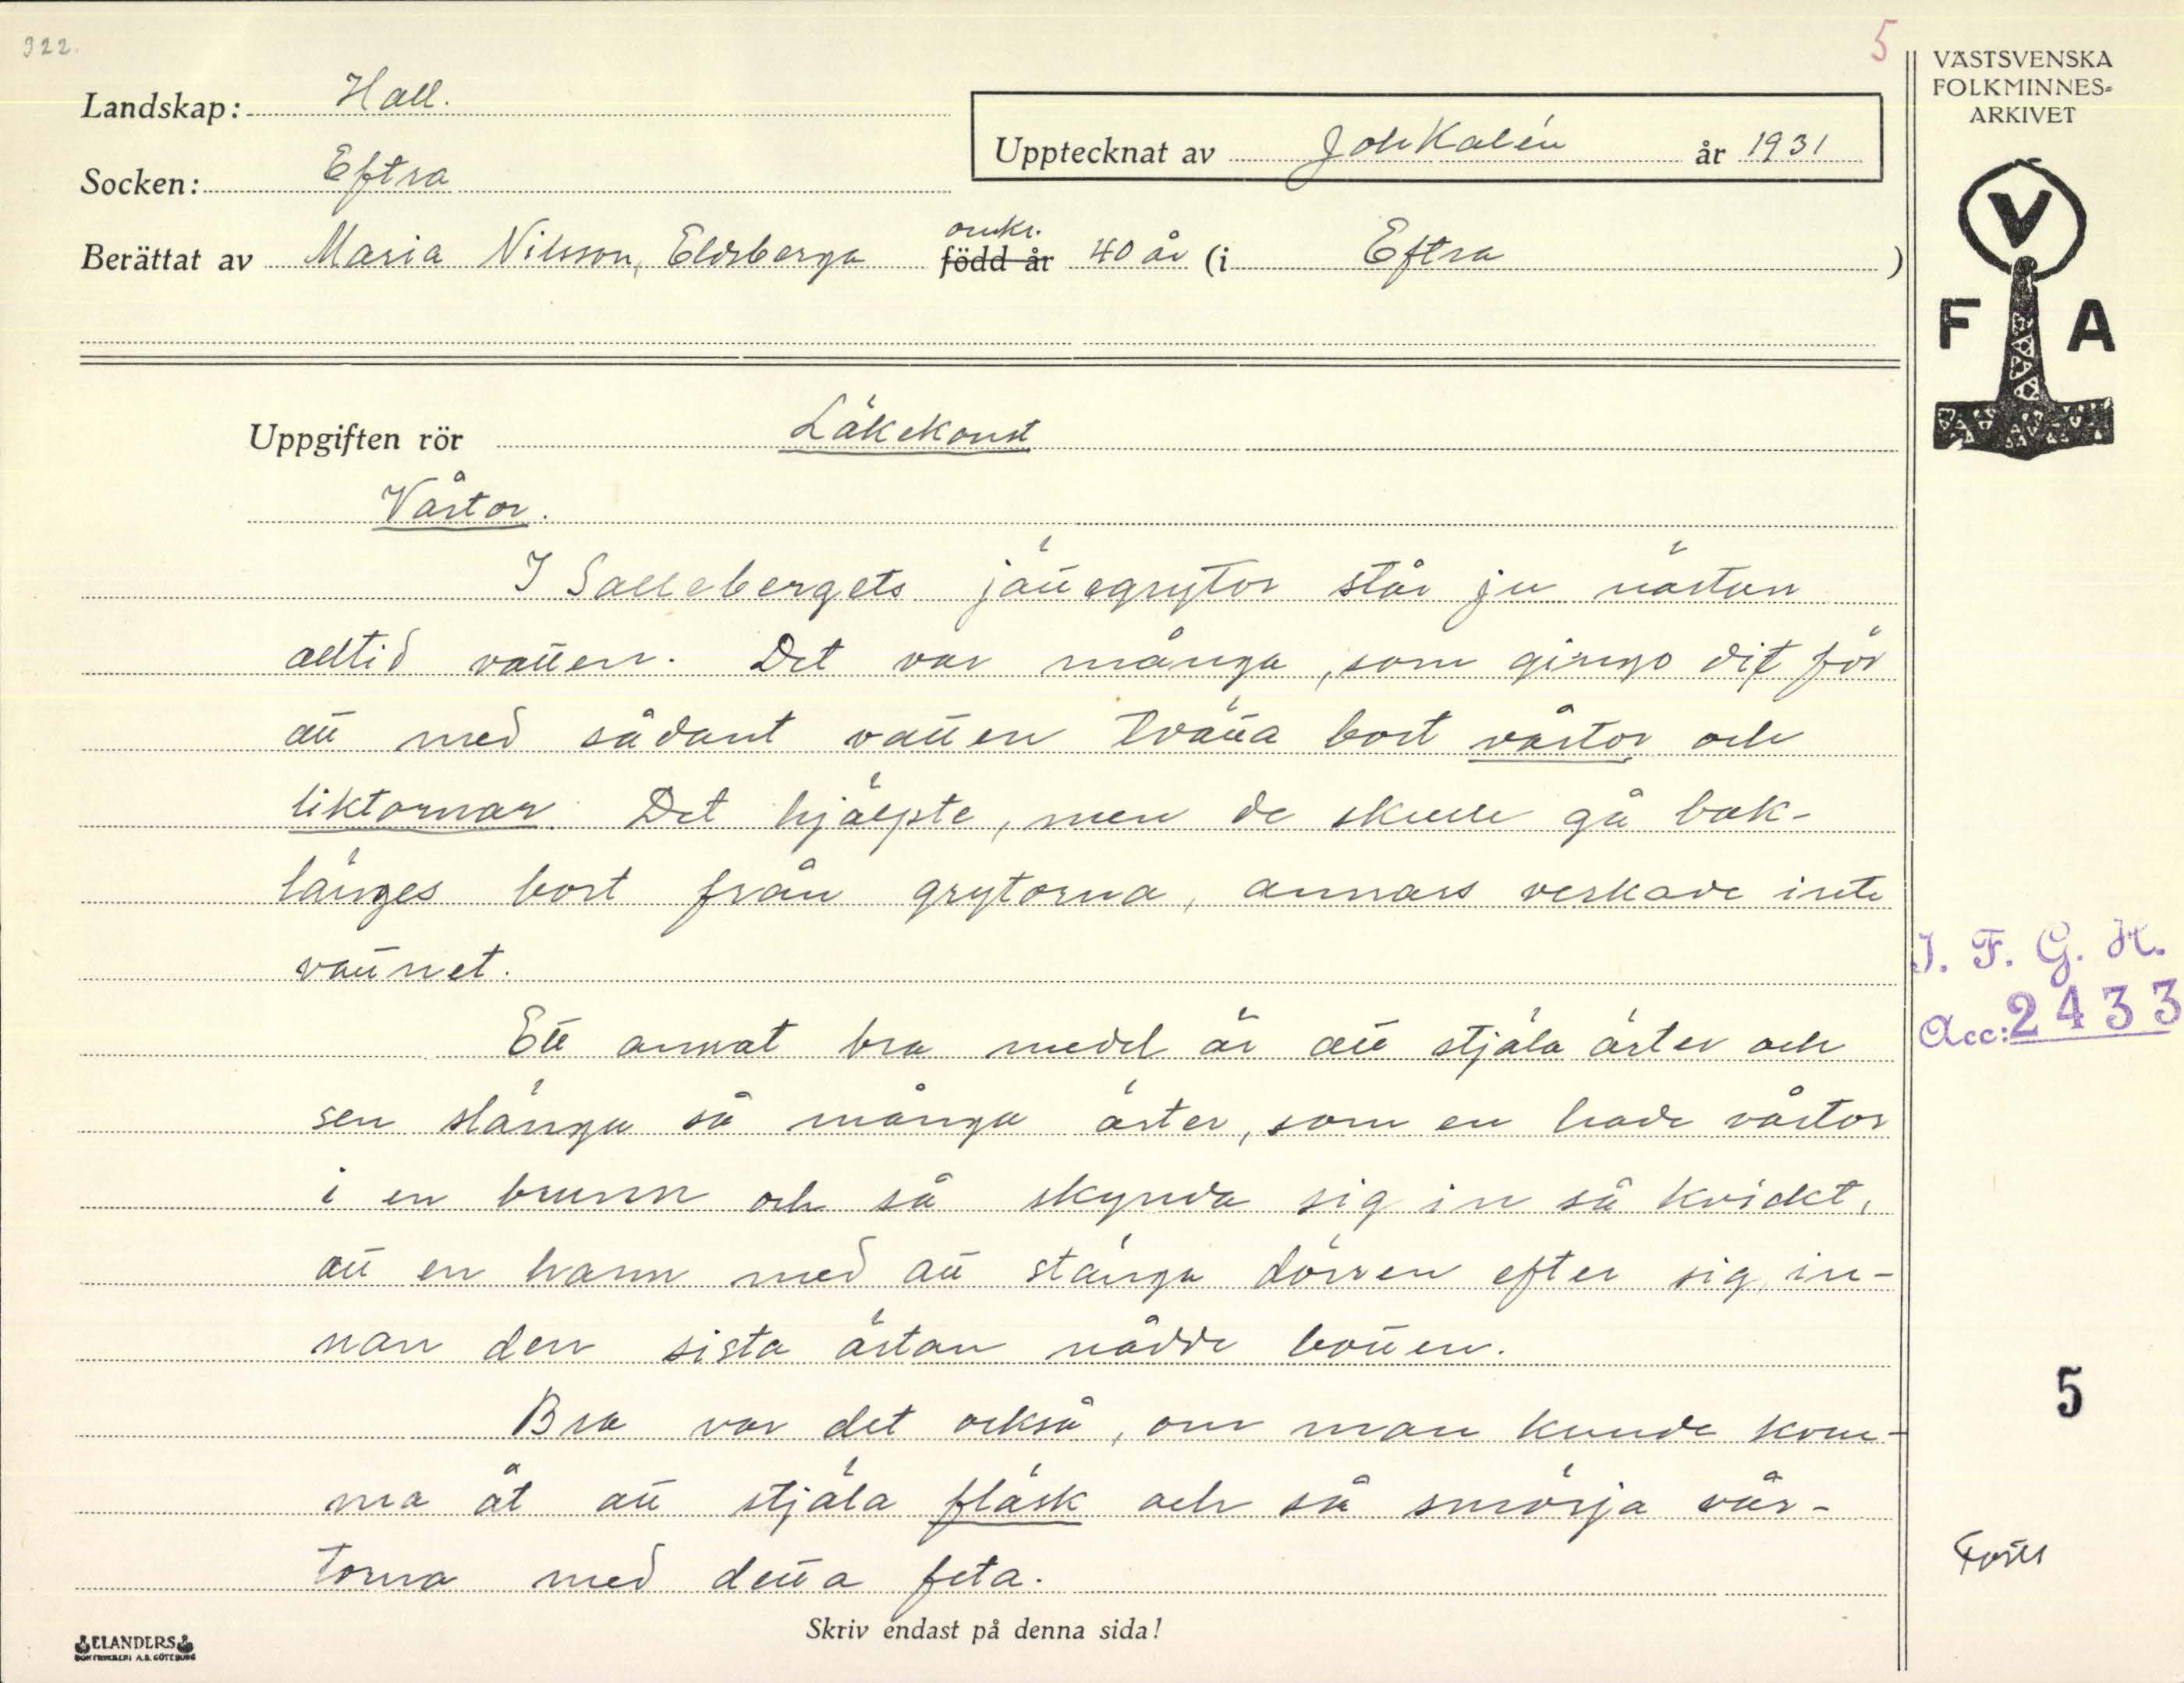 322.
5
Landskap: Hall.
Socken: Eftra
Upptecknat av Joh Kalén år 1931
omkr.
Berättat av Maria Nilsson, Eldsberga född år 40 år (i Eftra )
VÄSTSVENSKA
FOLKMINNES-
ARKIVET
V
F A
Uppgiften rör Läkekonst
Vårtor.
I Sallebergets jättegrytor står ju nästan
alltid vatten. Det var många, som gingo dit för
att med sådant vatten tvätta bort vårtor och
liktornar. Det hjälpte, men de skulle gå bak-
länges bort från grytorna, annars verkade inte
vattnet.
Ett annat bra medel är att stjäla ärter och
sen slänga så många ärter, som en hade vårtor
i en brunn och så skynda sig in så kvickt,
att en hann med att stänga dörren efter sig, in-
nan den sista ärtan nådde botten.
Bra var det också, om man kunde kom-
ma åt att stjäla fläsk och så smörja vår-
torna med detta feta.
I. F. G. H.
Acc: 2433
5
Skriv endast på denna sida!
ELANDERS
BOKTRYCKERI A.B. GÖTEBORG